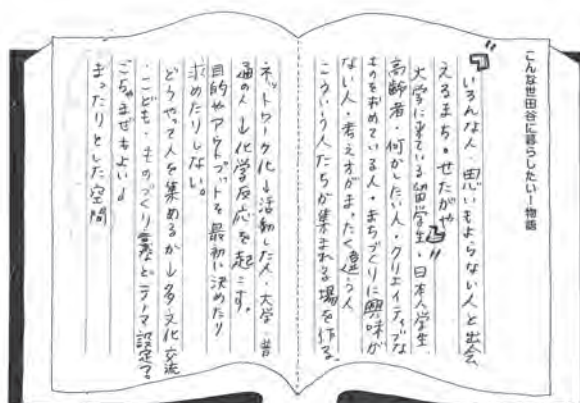 こんな世田谷に暮らしたい!物語
『いろんな人・思いもよらない人と出会
えるまち・せたがや』
大学に来ている留学生・日本人学生、
高齢者・何かしたい人・クリエイティブな
ものを求めている人・まちづくりに興味が
ない人・考え方がまったく違う人
こういう人たちが集まれる場を作る。
ネットワーク化↓活動した人・大学・普
通の人↓化学反応を起こす。
目的やアウトプットを最初に決めたり
求めたりしない。
どうやって人を集めるか↓多文化交流
・こども・ものづくり・農などテーマ設定?
ごちゃまぜもよい♩
まったりとした空間